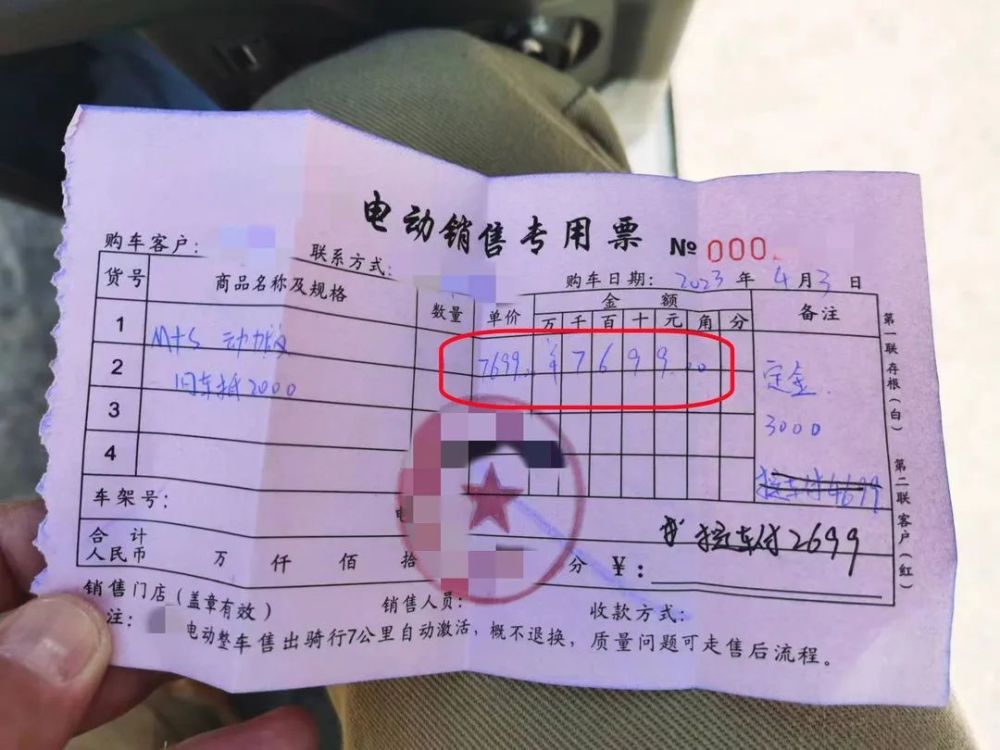 电动销售专用票 № 000
购车客户： 联系方式： 购车日期：2023年4月3日
货号 商品名称及规格 数量 单价 金额 备注
万 千 百 十 元 角 分
1 M+S 动力版
2 旧车抵2000 7699.00 ¥ 7 6 9 9. 00 定金
3 3000
4 提车付4699
车架号： 电
提车付2699
合计
人民币 万 仟 佰 拾 分 ¥：
销售门店（盖章有效） 销售人员： 收款方式：
注： 电动整车售出骑行7公里自动激活，概不退换，质量问题可走售后流程。
第一联存根（白）
第二联客户（红）